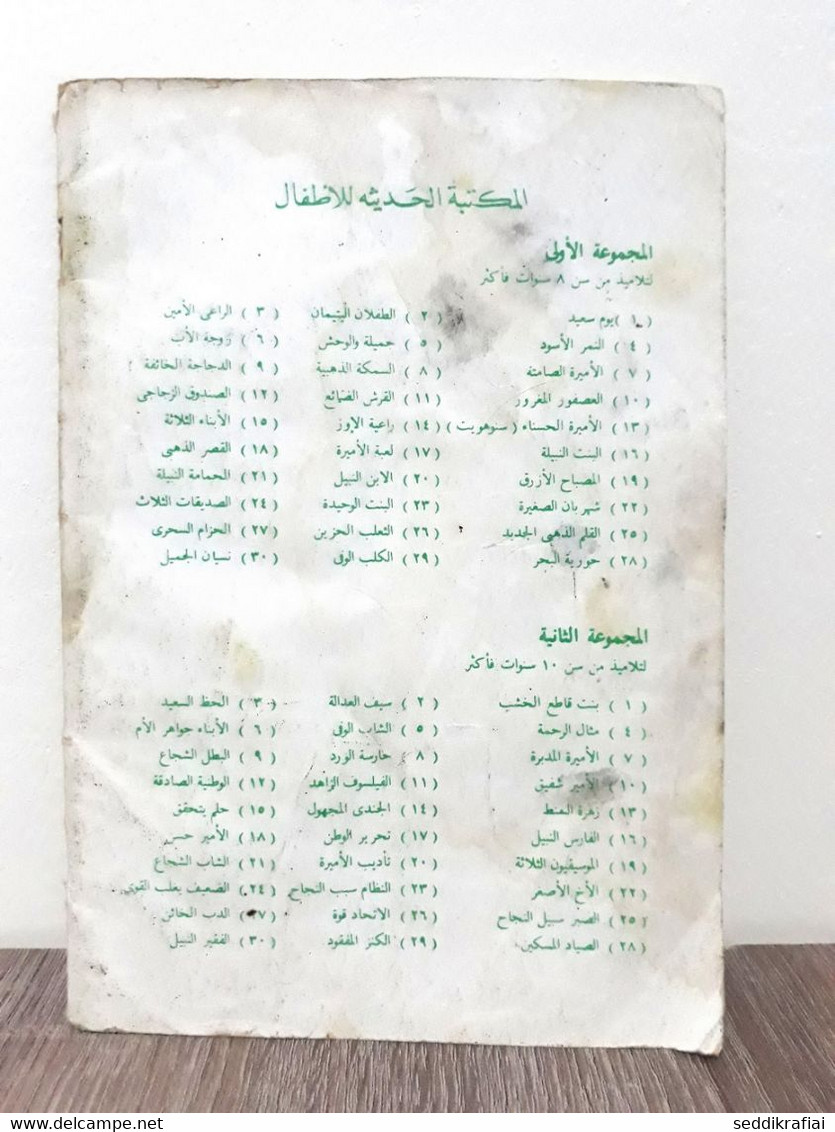 المكتبة الحديثه للاطفال
المجموعة الأولى
لتلاميذ من سن ٨ سنوات فأكثر
( ١ ) يوم سعيد ( ٢ ) الطفلان اليتيمان ( ٣ ) الراعى الأمين
( ٤ ) النمر الأسود ( ٥ ) جميلة والوحش ( ٦ ) زوجة الأب
( ٧ ) الأميرة الصامتة ( ٨ ) السمكة الذهبية ( ٩ ) الدجاجة الخائفة
( ١٠ ) العصفور المغرور ( ١١ ) القرش الضائع ( ١٢ ) الصندوق الزجاجى
( ١٣ ) الأميرة الحسناء ( سنوهويت ) ( ١٤ ) راعية الإوز ( ١٥ ) الأبناء الثلاثة
( ١٦ ) البنت النبيلة ( ١٧ ) لعبة الأميرة ( ١٨ ) القصر الذهبى
( ١٩ ) المصباح الأزرق ( ٢٠ ) الابن النبيل ( ٢١ ) الحمامة النبيلة
( ٢٢ ) شهربان الصغيرة ( ٢٣ ) البنت الوحيدة ( ٢٤ ) الصديقات الثلاث
( ٢٥ ) القلم الذهبى الجديد ( ٢٦ ) الثعلب الحزين ( ٢٧ ) الحزام السحرى
( ٢٨ ) حورية البحر ( ٢٩ ) الكلب الوفى ( ٣٠ ) نسيان الجميل
المجموعة الثانية
لتلاميذ من سن ١٠ سنوات فأكثر
( ١ ) بنت قاطع الخشب ( ٢ ) سيف العدالة ( ٣ ) الحظ السعيد
( ٤ ) مثال الرحمة ( ٥ ) الشاب الوفى ( ٦ ) الأبناء جواهر الأم
( ٧ ) الأميرة المدبرة ( ٨ ) حارسة الورد ( ٩ ) البطل الشجاع
( ١٠ ) الأمير شفيق ( ١١ ) الفيلسوف الزاهد ( ١٢ ) الوطنية الصادقة
( ١٣ ) زهرة ( ١٤ ) الجندى المجهول ( ١٥ ) حلم يتحقق
( ١٦ ) الفارس النبيل ( ١٧ ) تحرير الوطن ( ١٨ ) الأمير حسن
( ١٩ ) الموسيقيون الثلاثة ( ٢٠ ) تأديب الأميرة ( ٢١ ) الشاب الشجاع
( ٢٢ ) الأخ الأصغر ( ٢٣ ) النظام سبب النجاح ( ٢٤ ) الضعيف يغلب القوى
( ٢٥ ) الصبر سبيل النجاح ( ٢٦ ) الاتحاد قوة ( ٢٧ ) الدب الخائن
( ٢٨ ) الصياد المسكين ( ٢٩ ) الكنز المفقود ( ٣٠ ) الفقير النبيل
www.delcampe.net
seddikrafiai